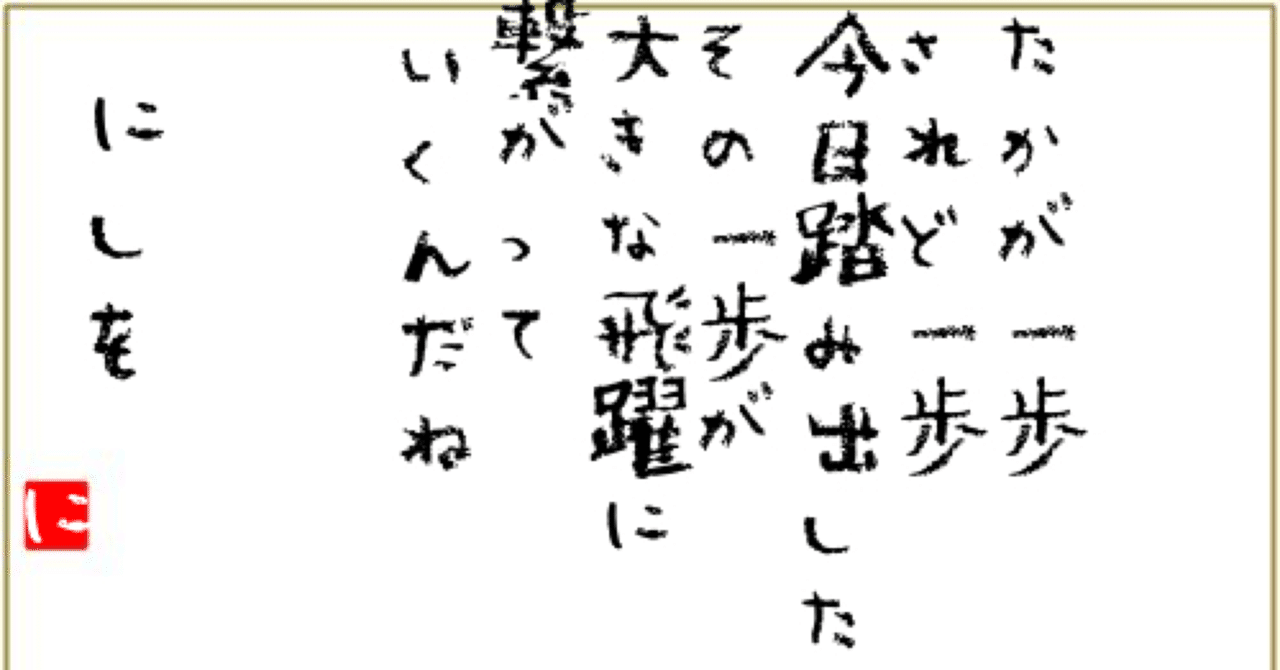 たかが一歩
されど一歩
今日踏み出した
その一歩が
大きな飛躍に
繋がって
いくんだね
にしを
に